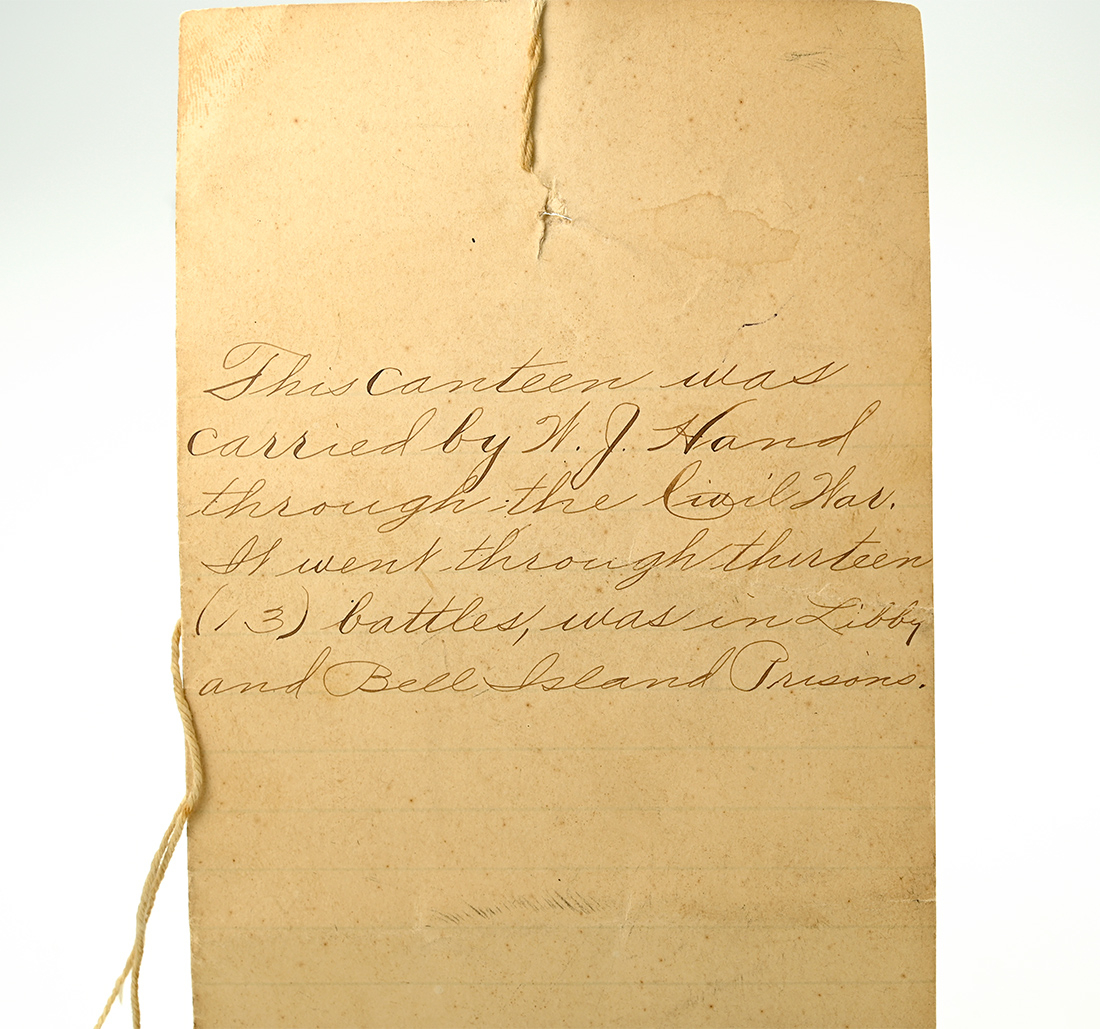 This canteen was
carried by W. J. Hand
through the Civil War.
It went through thirteen
(13) battles, was in Libby
and Bell Island Prisons.